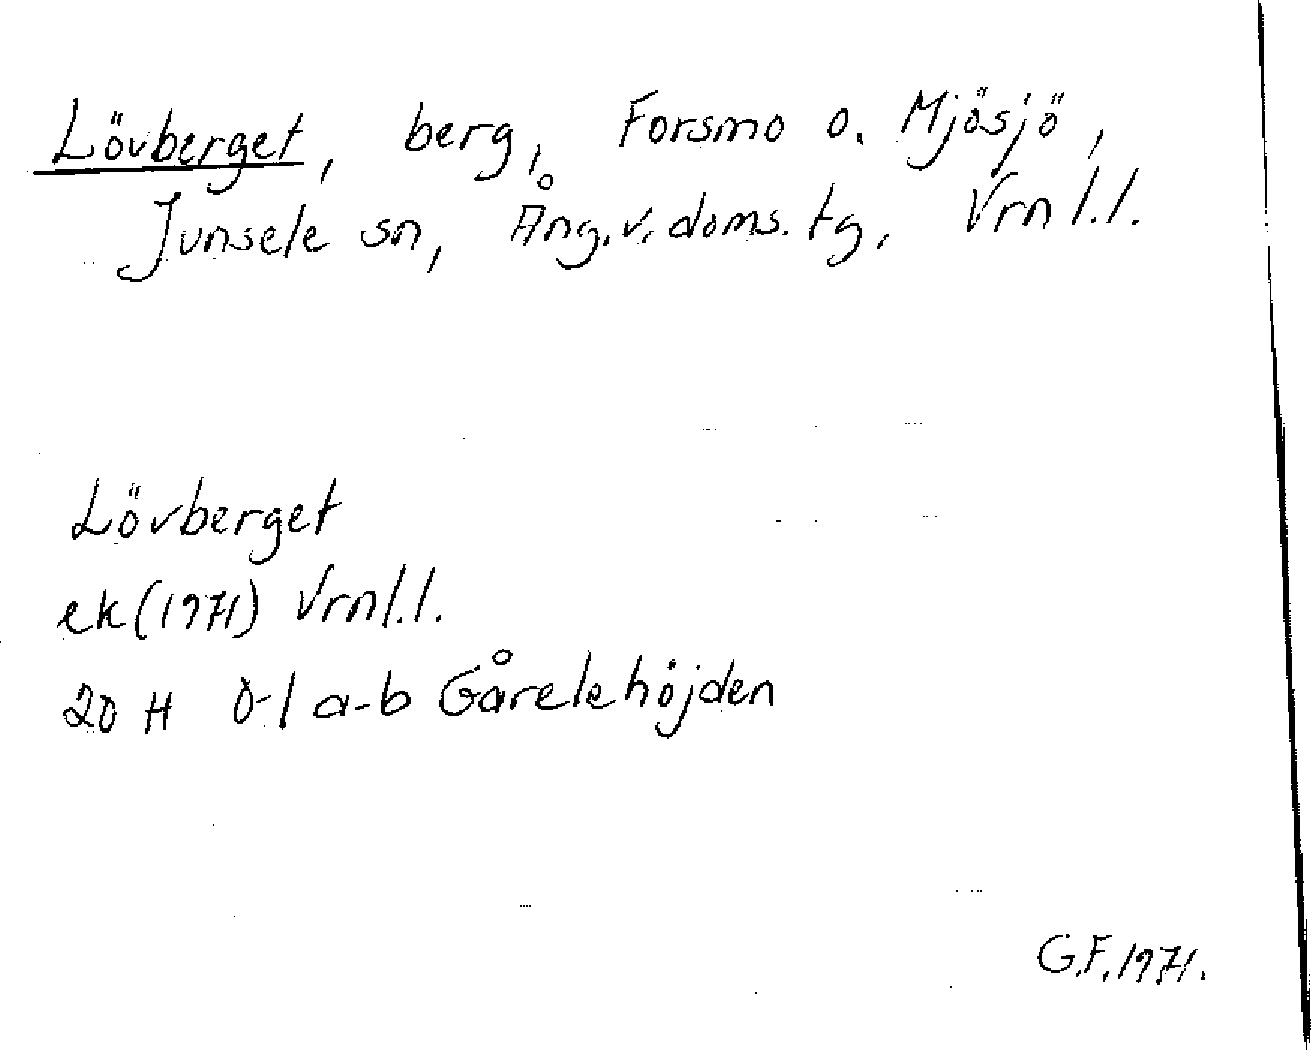 Lövberget, berg, Forsmo o. Mjösjö,
Junsele sn, Ång.v.doms.tg, Vrnl.l.
Lövberget
ek(1971) Vrnl.l.
20 H 0-1 a-b Gårelehöjden
G.F.1971.